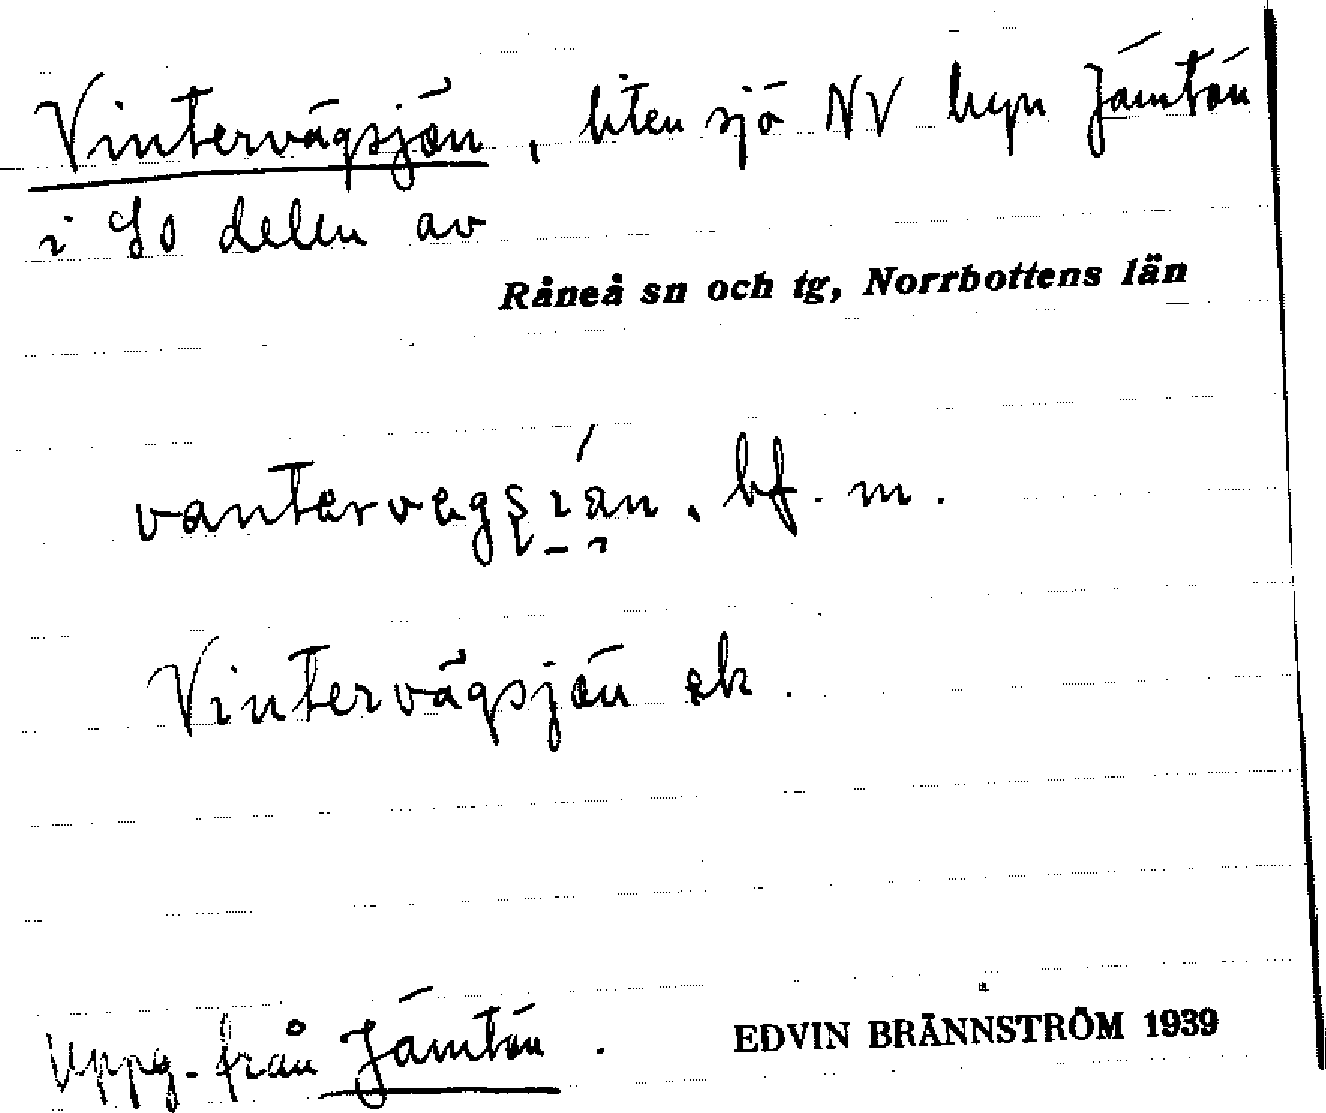 Vintervägsjön, liten sjö NV byn Jämtön
i SO delen av
Råneå sn och tg, Norrbottens län
bf. m.
Vintervägsjön ek.
Uppg. från Jämtön.
EDVIN BRÄNNSTRÖM 1939